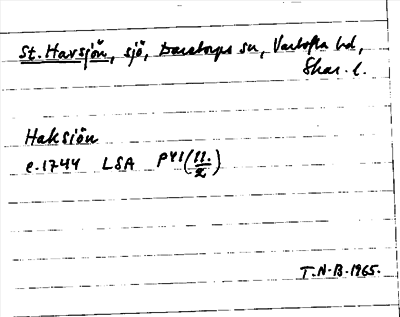 St. Havsjön, sjö, Daretorps sn, Vartofta hd,
Skar. l.
Haksiön
c. 1744 LSA PY1 (11./2)
T.N-B. 1965.